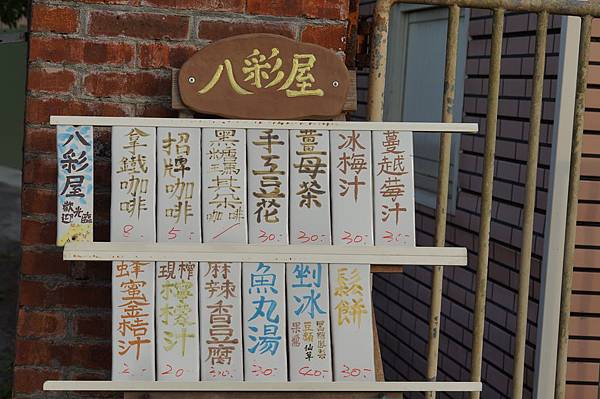 八彩屋
八彩屋 歡迎光臨
拿鐵咖啡
招牌咖啡
黑糖瑪其朵咖啡
手工豆花 30.-
薑母茶 30.-
冰梅汁 30.-
蔓越莓汁
蜂蜜金桔汁
現榨檸檬汁
麻辣香豆腐 30.-
魚丸湯 30.-
剉冰 豆類 仙草 果醬 40.-
鬆餅 30.-